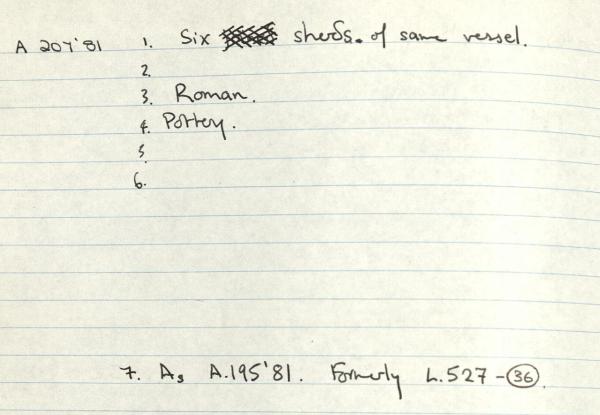 A 207'81 1. Six sherds. of same vessel.
2.
3. Roman.
4. Pottery.
5.
6.
7. As A.195'81. Formerly L.527-36